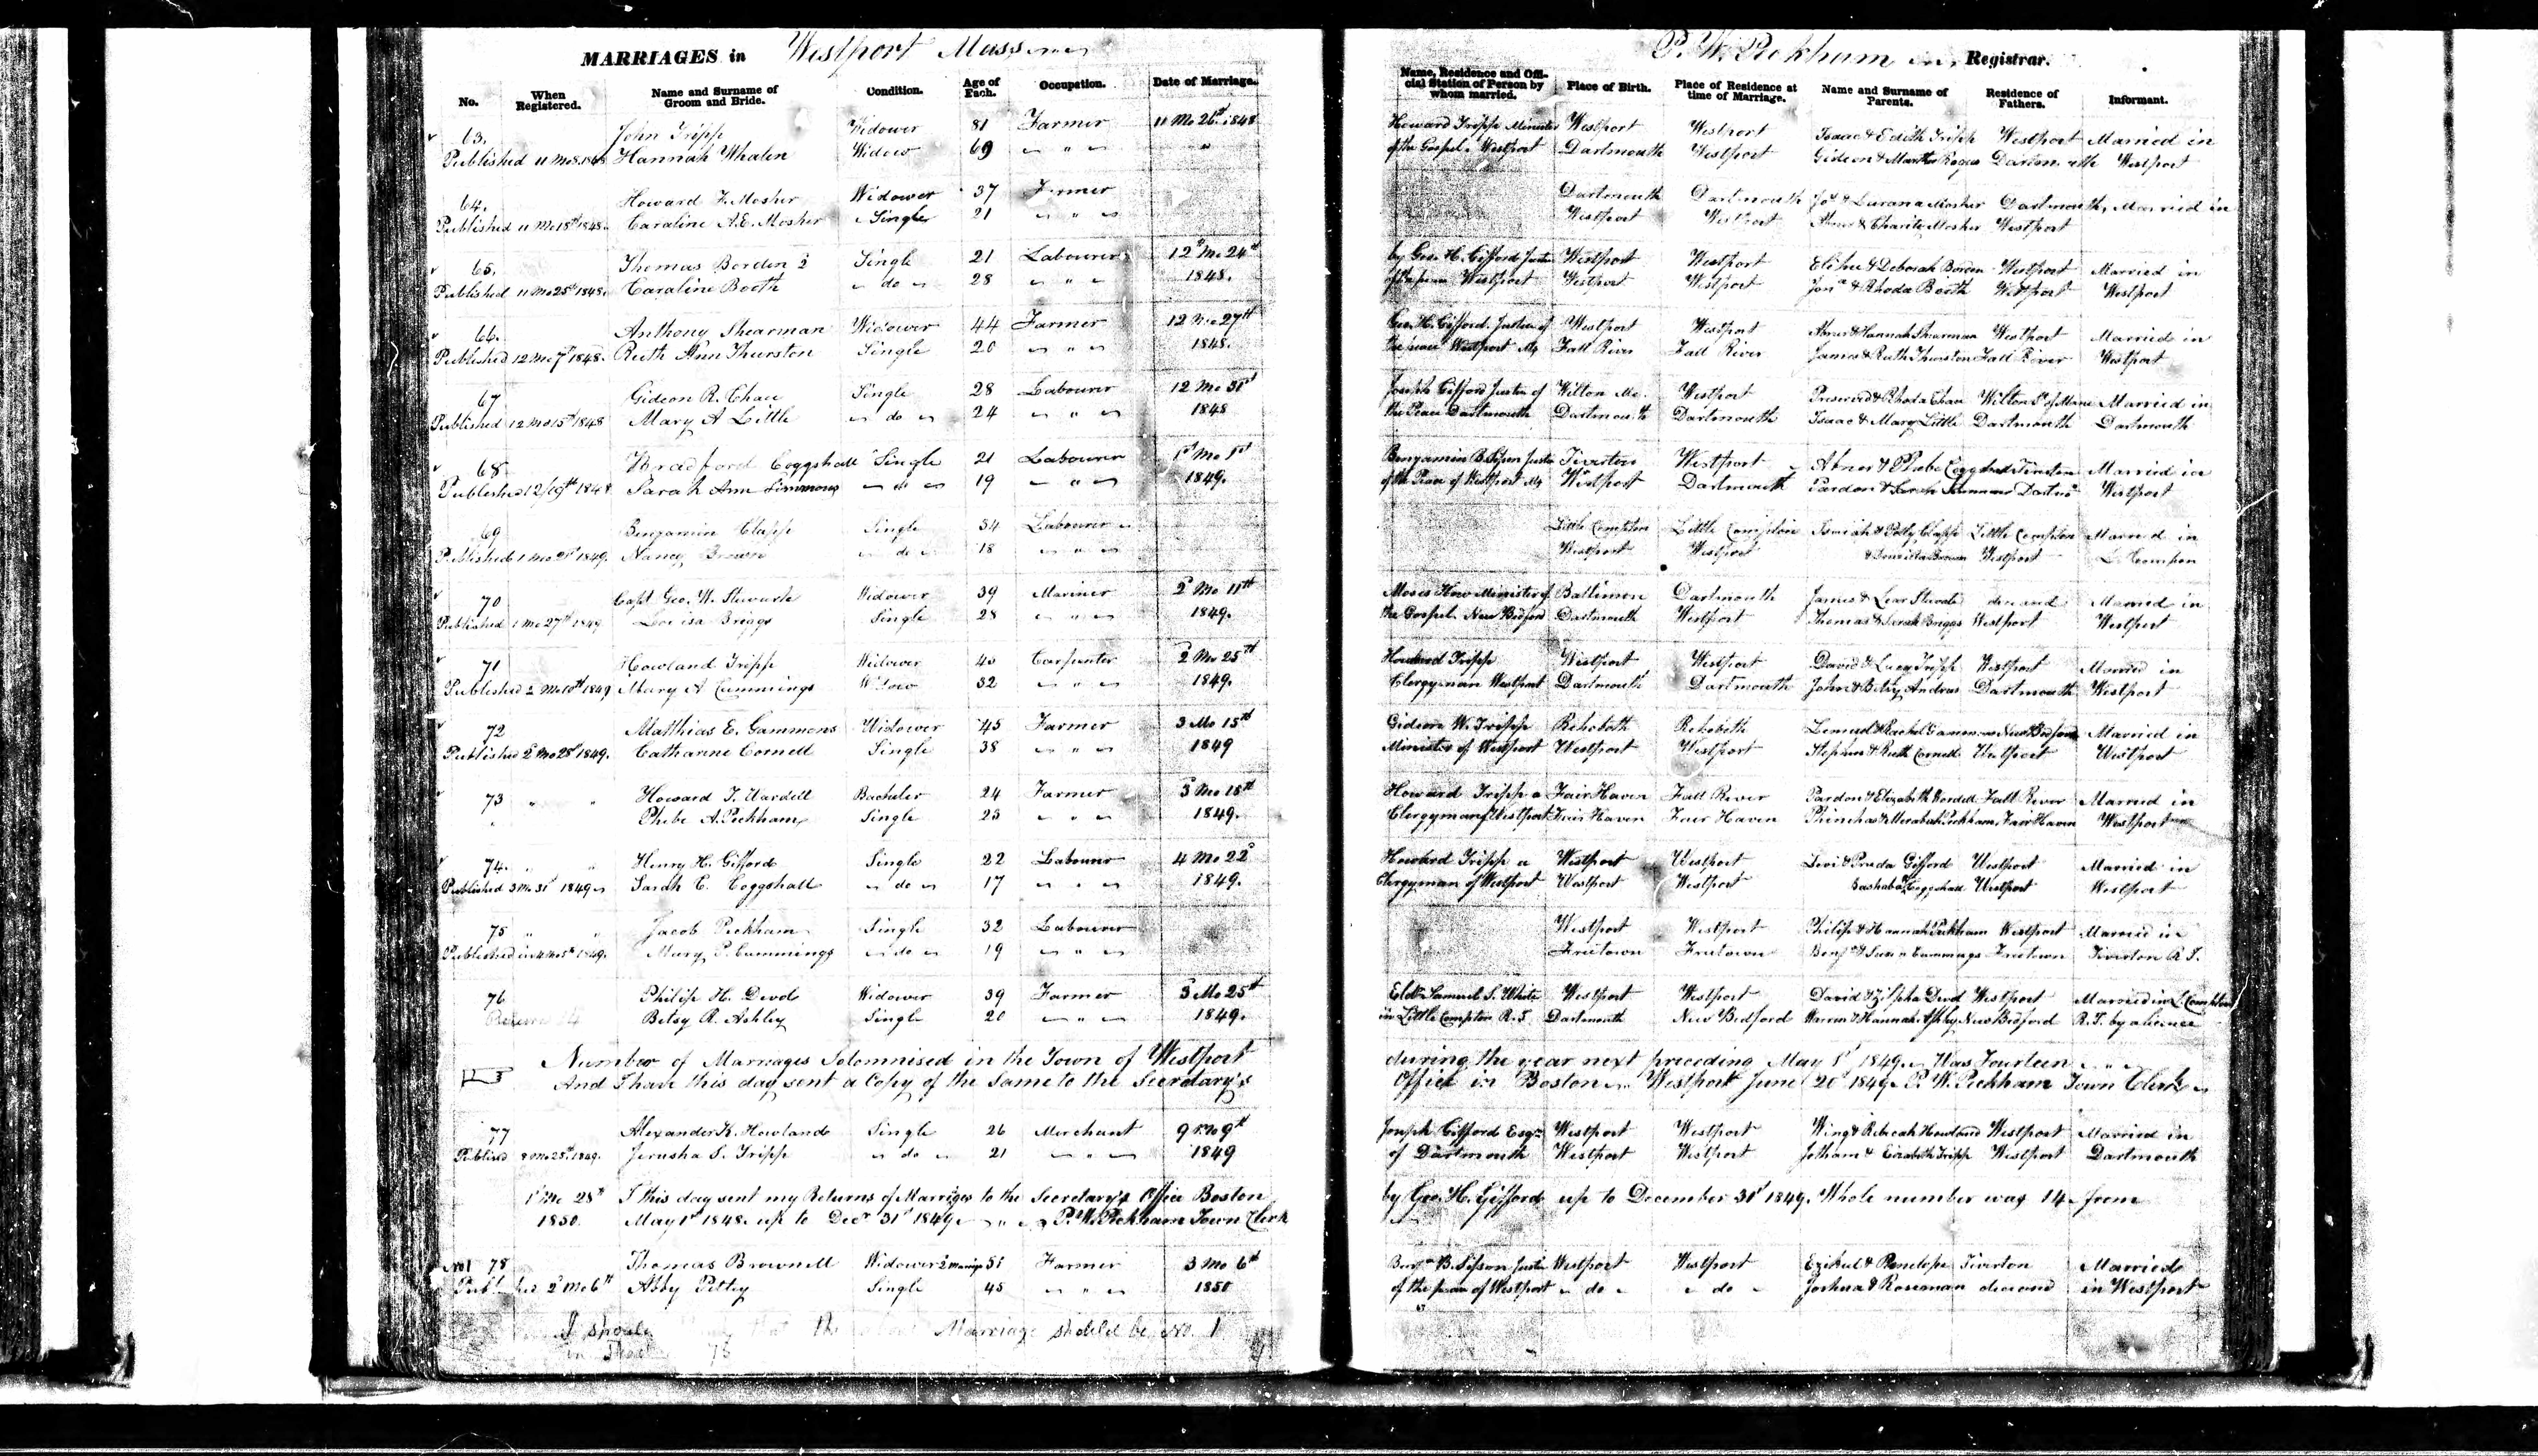 MARRIAGES in Westport Mass
P. W. Peckham Registrar.
No. When Registered. Name and Surname of Groom and Bride. Condition. Age of Each. Occupation. Date of Marriage. Name, Residence and Official Station of Person by whom married. Place of Birth. Place of Residence at time of Marriage. Name and Surname of Parents. Residence of Fathers. Informant.
63. John Tripp Widower 81 Farmer 11 Mo 26th 1848 Howard Tripp Minister Westport Westport Isaac & Edith Tripp Westport Married in
Published 11 Mo 8 1848 Hannah Whalen Widow 69 " of the Gospel Westport Dartmouth Westport Gideon & Martha Dartmouth Westport
64. Howard F. Mosher Widower 37 Farmer Dartmouth Dartmouth & Lurana Mosher Dartmouth, Married in
Published 11 Mo 18th 1848. Caraline A.E. Mosher Single 21 " Westport Westport Abner & Charity Mosher Westport
65. Thomas Borden 2 Single 21 Labourer 12th Mo 24th by Geo. H. Gifford Justice Westport Westport Elihu & Deborah Borden Westport Married in
Published 11 Mo 25th 1848. Caraline Booth do 28 " 1848. of the peace Westport Westport Westport Jona & Rhoda Booth Westport Westport
66. Anthony Shearman Widower 44 Farmer 12 Mo 27th Geo. H. Gifford. Justice of Westport Westport Abner & Hannah Shearman Westport Married in
Published 12 Mo 7th 1848. Ruth Ann Thurston Single 20 " 1848. the peace Westport Ms Fall River Fall River James & Ruth Thurston Fall River Westport
67 Gideon R. Chace Single 28 Labourer 12 Mo 31st Joseph Gifford Justice of Wilton Me. Westport Preserved & Rhoda Chace Wilton St of Maine Married in
Published 12 Mo 15th 1848 Mary A Little do 24 " 1848 the Peace Dartmouth Dartmouth Dartmouth Isaac & Mary Little Dartmouth Dartmouth
68 Bradford Coggshall Single 21 Labourer 1st Mo 1st Benjamin B. Sisson Justice Tiverton Westport Abner & Phebe Coggshall Tiverton Married in
Published 12/19th 1848 Sarah Ann Simmons do 19 " 1849. of the Peace of Westport Ms Westport Dartmouth Pardon & Sarah Simmons Dartmo Westport
69 Benjamin Clapp Single 34 Labourer Little Compton Little Compton Isaiah & Polly Clapp Little Compton Married in
Published 1 Mo 21st 1849. Nancy Brown do 18 " Westport Westport & Brown Westport L. Compton
70 Capt Geo. W. Stewart Widower 39 Mariner 2d Mo 11th Moses How Minister of Baltimore Dartmouth James & Lear deceased Married in
Published 1 Mo 27th 1849 Louisa Briggs Single 28 " 1849. the Gospel New Bedford Dartmouth Westport Thomas & Sarah Briggs Westport Westport
71 Howland Tripp Widower 40 Carpenter 2 Mo 25th Howard Tripp Westport Westport David & Lucy Tripp Westport Married in
Published 2 Mo 10th 1849 Mary A Cummings Widow 32 " 1849. Clergyman Westport Dartmouth Dartmouth John & Betsy Andrus Dartmouth Westport
72 Matthias E. Gammons Widower 45 Farmer 3 Mo 15th Gideon W. Tripp Rehoboth Rehoboth Lemuel & Rachel Gammons New Bedford Married in
Published 2d Mo 28th 1849. Catharine Cornell Single 38 " 1849 Minister of Westport Westport Westport Stephen & Ruth Cornell Westport Westport
73 " " Howard T. Wardell Bachelor 24 Farmer 3 Mo 18th Howard Tripp a Fair Haven Fall River Pardon & Elizabeth Wordell Fall River Married in
Phebe A. Peckham Single 23 " 1849. Clergyman of Westport Fair Haven Fair Haven Phinehas & Merabah Peckham Fair Haven Westport
74. " " Henry H. Gifford Single 22 Labourer 4 Mo 22d Howard Tripp a Westport Westport Levi & Gifford Westport Married in
Published 3 Mo 31st 1849 Sarah E. Coggshall do 17 " 1849. Clergyman of Westport Westport Westport Coggshall Westport Westport
75 " " Jacob Peckham Single 32 Labourer Westport Westport Philip & Hannah Peckham Westport Married in
Published in 4 Mo 5th 1849. Mary P. Cummings do 19 " Freetown Freetown Benjn & Susan Cummings Freetown Tiverton R. I.
76 Philip H. Devol Widower 39 Farmer 3 Mo 25th Eldr. Samuel S. White Westport Westport David & Zilpha Devol Westport Married in L. Compton
Betsy R. Ashley Single 20 " 1849. in Little Compton R. I. Dartmouth New Bedford Warren & Hannah Ashley New Bedford R. I. by a licence
Number of Marriages Solemnised in the Town of Westport during the year next preceding May 1st 1849. Was Fourteen
And I have this day sent a Copy of the Same to the Secretary's Office in Boston. Westport June 20th 1849. P. W. Peckham Town Clerk
77 Alexander K. Howland Single 26 Merchant 9 Mo 9th Joseph Gifford Esqr Westport Westport Wing & Rebecah Howland Westport Married in
Published 8 Mo 25th 1849. Jerusha S. Tripp do 21 " 1849 of Dartmouth Westport Westport Jotham & Elizabeth Tripp Westport Dartmouth
1st Mo 28th I this day sent my Returns of Marriges to the Secretary's Office Boston by Geo. H. Gifford up to December 31st 1849. Whole number was 14 from
1850. May 1st 1848. up to Decr 31st 1849. P. W. Peckham Town Clerk
No 1 78 Thomas Brownell Widower 2 marriage 51 Farmer 3 Mo 6th Benjn B. Sisson Justice Westport Westport Ezikel & Penelope Tiverton Married
Published 2d Mo 6th Abby Pettey Single 45 " 1850 of the peace of Westport do do Joshua & Roseman deceased in Westport
I should that the Marriage should be No. 1
in 78